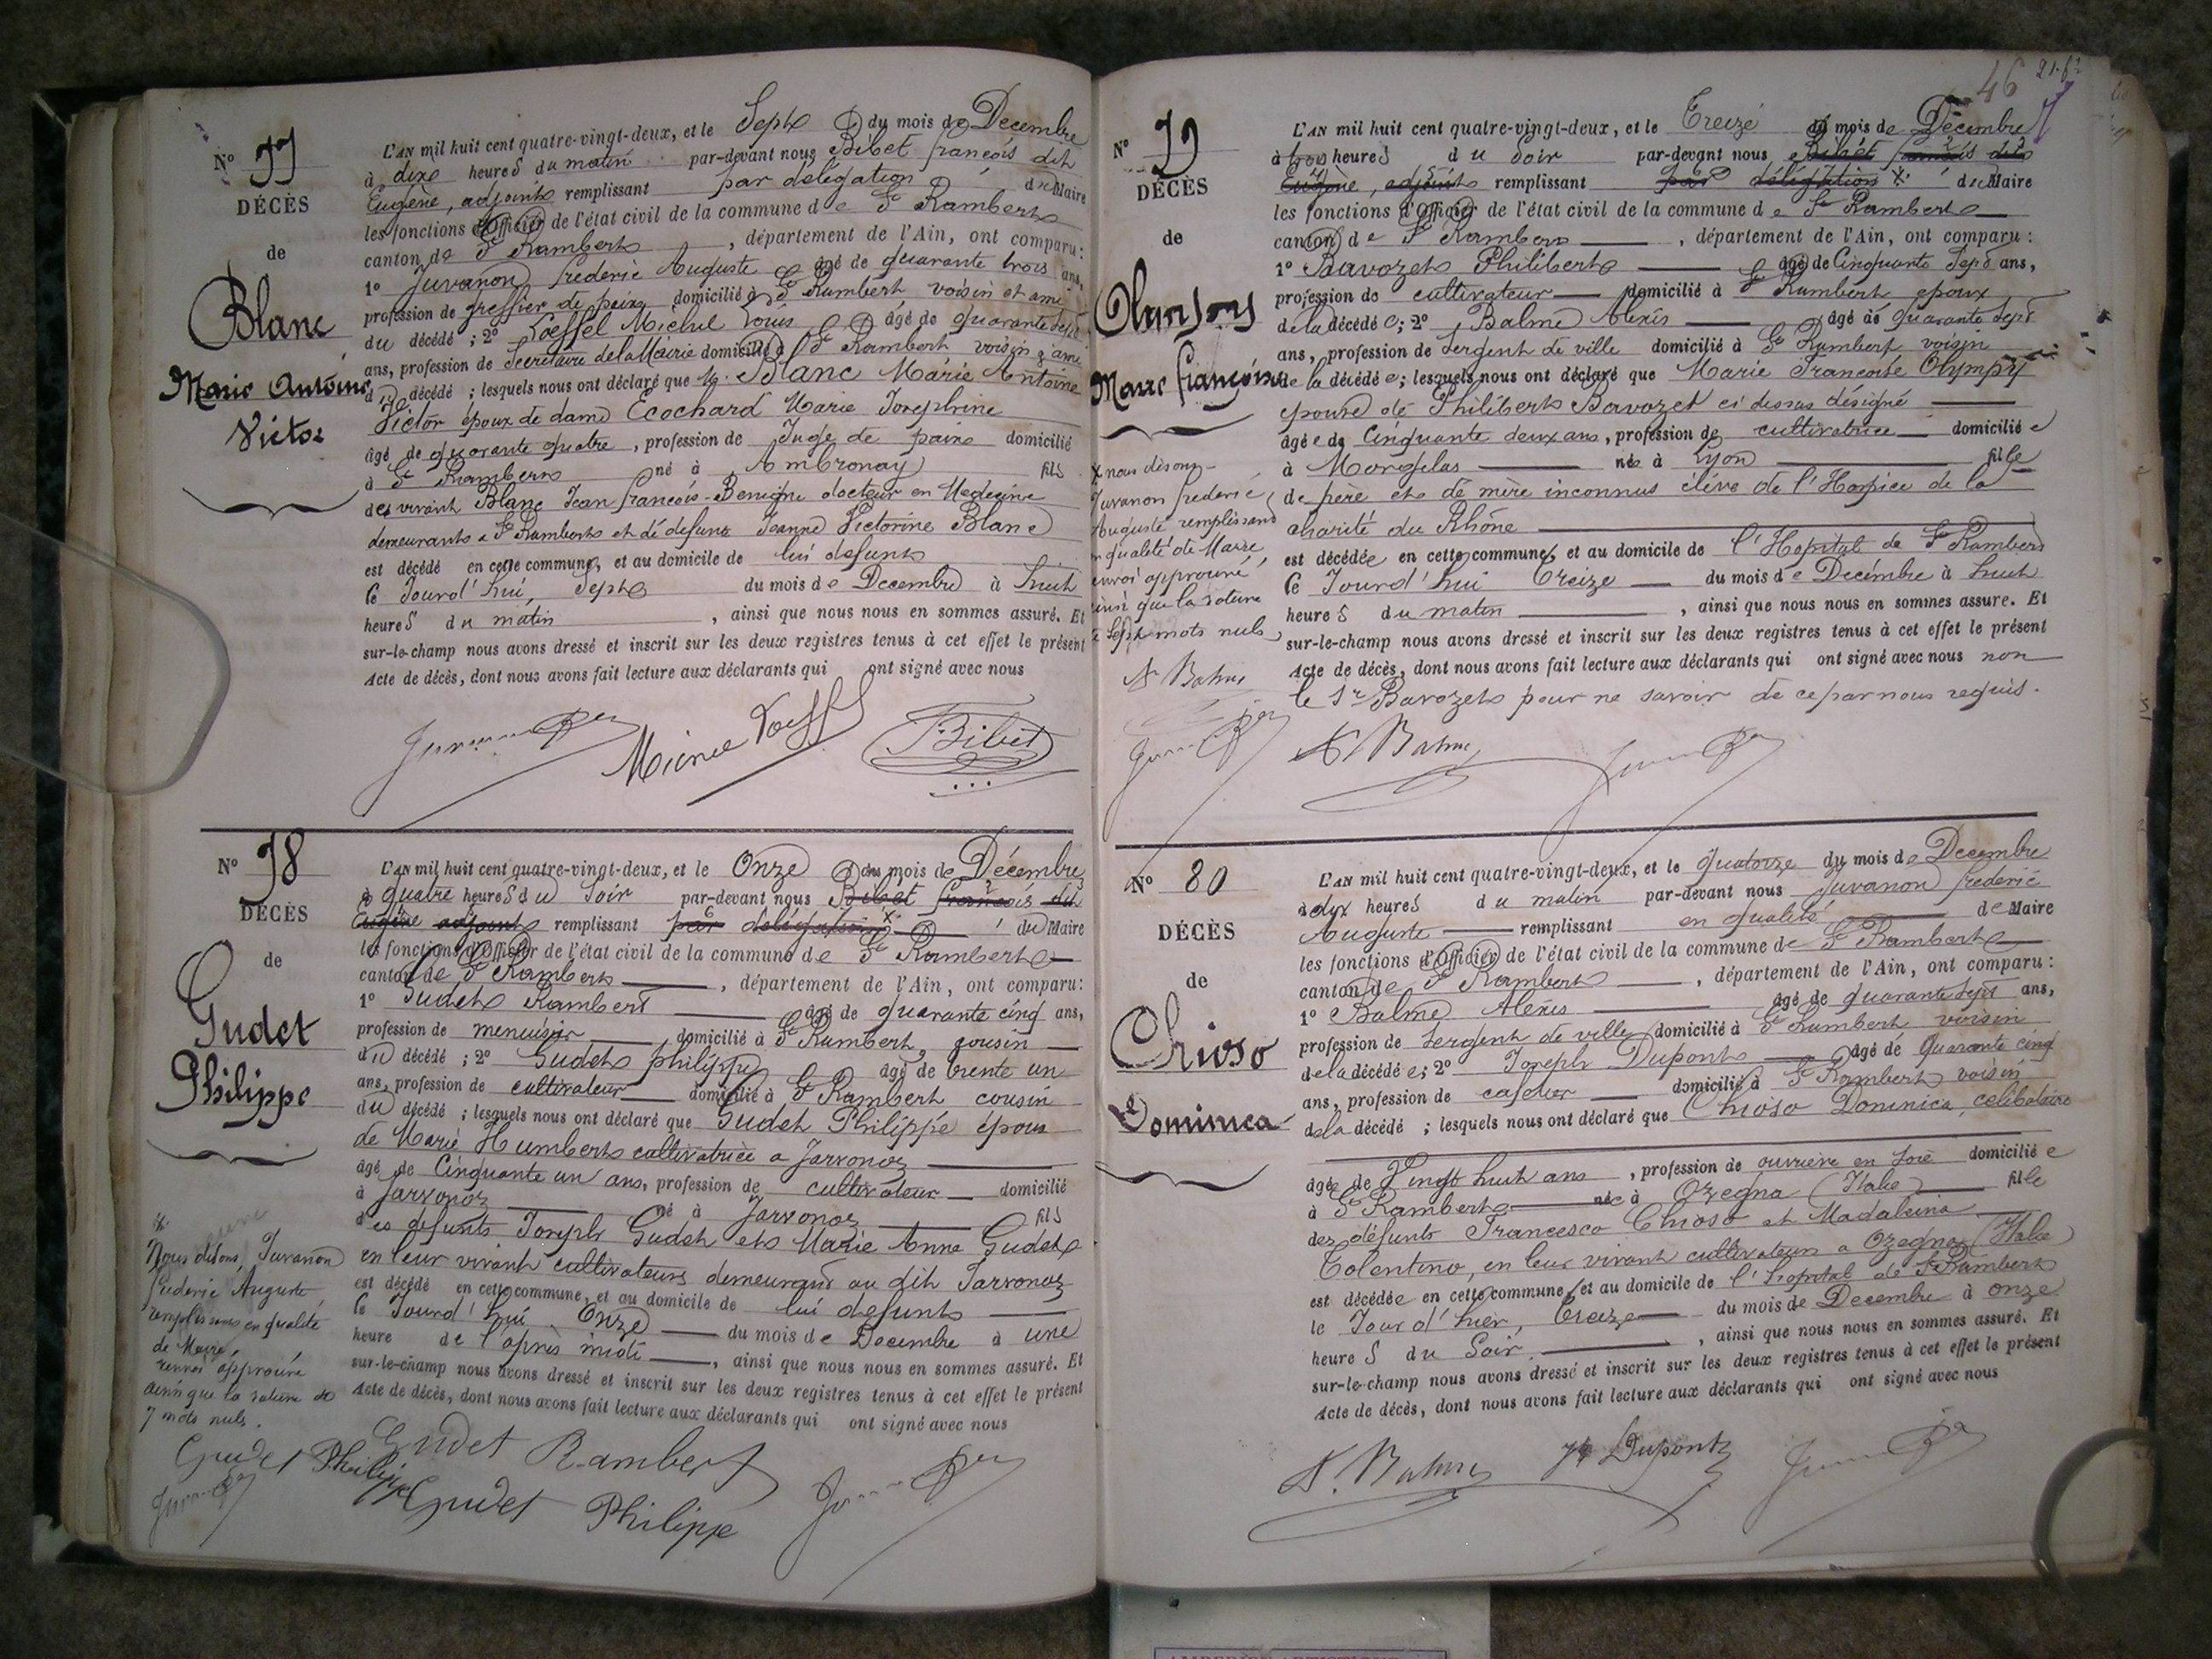 N° 77
DÉCÈS
de
Blanc
Marie Antoine
Victor
L'AN mil huit cent quatre-vingt-deux, et le Sept du mois de Décembre
à dix heures du matin par-devant nous Bibet françois dit
Eugène, adjoint remplissant par délégation du Maire
les fonctions d'Officier de l'état civil de la commune de St Rambert
canton de St Rambert, département de l'Ain, ont comparu:
1° Juvanon frederic Auguste âgé de quarante trois ans,
profession de greffier de paix domicilié à St Rambert voisin et ami
du décédé; 2° Loeffel Michel Louis âgé de quarante sept
ans, profession de Secrétaire de la Mairie domicilié à St Rambert voisin & ami
du décédé; lesquels nous ont déclaré que Mr. Blanc Marie Antoine
Victor époux de dame Ecochard Marie Josephine
âgé de quarante quatre, profession de Juge de paix domicilié
à St Rambert né à Ambronay fils
des vivant Blanc Jean françois-Benigne docteur en Medecine
demeurant à St Rambert et de defunte Jeanne Victorine Blanc
est décédé en cette commune, et au domicile de lui defunt
le Jourd'hui, Sept du mois de Decembre à huit
heures du matin, ainsi que nous nous en sommes assuré. Et
sur-le-champ nous avons dressé et inscrit sur les deux registres tenus à cet effet le présent
Acte de décès, dont nous avons fait lecture aux déclarants qui ont signé avec nous
Michel Loeffel
Bibet
N° 78
DÉCÈS
de
Gudet
Philippe
L'AN mil huit cent quatre-vingt-deux, et le Onze du mois de Décembre
à quatre heures du Soir par-devant nous Bibet françois dit
Eugène adjoint remplissant par délégation x du Maire
les fonctions d'Officier de l'état civil de la commune de St Rambert
canton de St Rambert, département de l'Ain, ont comparu:
1° Gudet Rambert âgé de quarante cinq ans,
profession de menuisier domicilié à St Rambert, cousin
du décédé; 2° Gudet philippe âgé de trente un
ans, profession de cultivateur domicilié à St Rambert cousin
du décédé; lesquels nous ont déclaré que Gudet Philippe époux
de Marie Humbert cultivatrice a Javronoz
âgé de Cinquante un ans, profession de cultivateur domicilié
à Javronoz né à Javronoz fils
des défunts Joseph Gudet et Marie Anne Gudet
en leur vivant cultivateurs demeurant au dit Javronoz
est décédé en cette commune, et au domicile de lui defunt
le Jourd'hui Onze du mois de Decembre à une
heure de l'après midi, ainsi que nous nous en sommes assuré. Et
sur-le-champ nous avons dressé et inscrit sur les deux registres tenus à cet effet le présent
Acte de décès, dont nous avons fait lecture aux déclarants qui ont signé avec nous
x
Nous disons, Juvanon
frederic Auguste
remplissant en qualité
de Maire,
renvoi approuvé
ainsi que la rature de
7 mots nuls.
Gudet Philippe
Gudet Rambert
Gudet Philippe
46
N° 79
DÉCÈS
de
Olympy
Marie françoise
L'AN mil huit cent quatre-vingt-deux, et le Treize du mois de Décembre
à trois heures du Soir par-devant nous Bibet françois dit
Eugène, adjoint remplissant par délégation x du Maire
les fonctions d'Officier de l'état civil de la commune de St Rambert
canton de St Rambert, département de l'Ain, ont comparu:
1° Bavozet Philibert âgé de Cinquante Sept ans,
profession de cultivateur domicilié à St Rambert epoux
de la décédée; 2° Balme Alexis âgé de quarante sept
ans, profession de Sergent de ville domicilié à St Rambert voisin
de la décédée; lesquels nous ont déclaré que Marie Françoise Olympy
epouse de Philibert Bavozet ci dessus désigné
âgée de Cinquante deux ans, profession de cultivatrice domiciliée
à Morgelas née à Lyon fille
de père et de mère inconnus élève de l'Hospice de la
charité du Rhône
est décédée en cette commune, et au domicile de l'Hopital de St Rambert
le Jourd'hui Treize du mois de Decémbre à huit
heures du matin, ainsi que nous nous en sommes assuré. Et
sur-le-champ nous avons dressé et inscrit sur les deux registres tenus à cet effet le présent
Acte de décès, dont nous avons fait lecture aux déclarants qui ont signé avec nous non
le Sr Bavozet pour ne savoir de ce par nous requis.
x nous disons
Juvanon frederic
Auguste remplissant
en qualité de Maire,
renvoi approuvé
ainsi que la rature
de Sept mots nuls
A. Balme
A. Balme
N° 80
DÉCÈS
de
Chioso
Dominica
L'AN mil huit cent quatre-vingt-deux, et le quatorze du mois de Decembre
à dix heures du matin par-devant nous Juvanon frederic
Auguste remplissant en qualité de Maire
les fonctions d'Officier de l'état civil de la commune de St Rambert
canton de St Rambert, département de l'Ain, ont comparu:
1° Balme Alexis âgé de quarante sept ans,
profession de Sergent de ville domicilié à St Rambert voisin
de la décédée; 2° Joseph Dupont âgé de Quarante cinq
ans, profession de cafetier domicilié à St Rambert voisin
de la décédé; lesquels nous ont déclaré que Chioso Dominica, celibataire
âgée de Vingt huit ans, profession de ouvrière en soie domiciliée
à St Rambert née à Ozegna (Italie) fille
des défunts Francesco Chioso et Madaleina
Tolentino, en leur vivant cultivateurs a Ozegna (Italie)
est décédée en cette commune, et au domicile de l'hopital de St Rambert
le Jour d'hier, Treize du mois de Decembre à onze
heures du Soir, ainsi que nous nous en sommes assuré. Et
sur-le-champ nous avons dressé et inscrit sur les deux registres tenus à cet effet le présent
Acte de décès, dont nous avons fait lecture aux déclarants qui ont signé avec nous
A. Balme
Jh Dupont